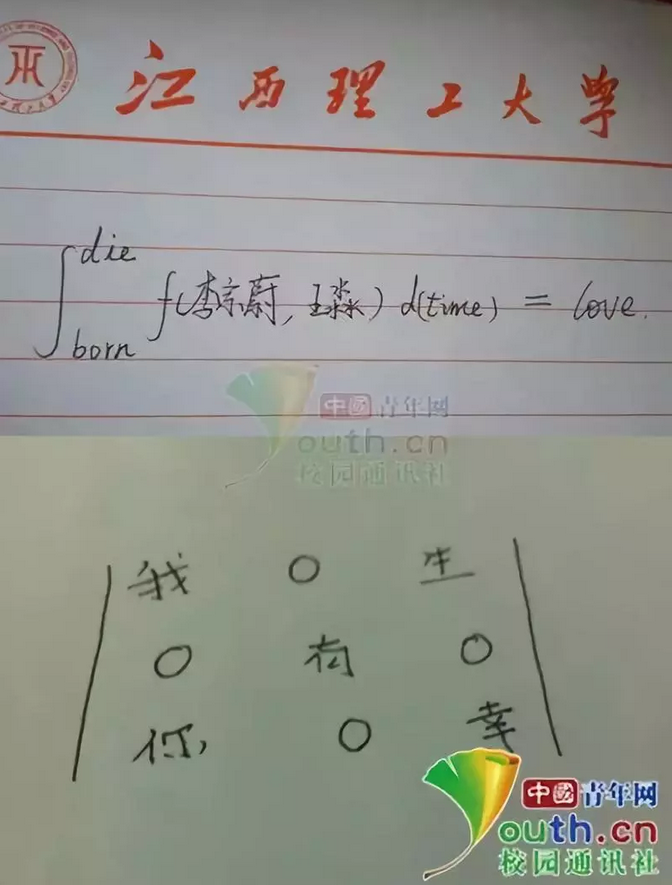 江西理工大学
∫ born die f(李宗蔚, 王淼) d(time) = love.
中國青年网
outh.cn
校园通讯社
| 我 0 生 |
| 0 有 0 |
| 你, 0 幸 |
中國青年网
outh.cn
校园通讯社